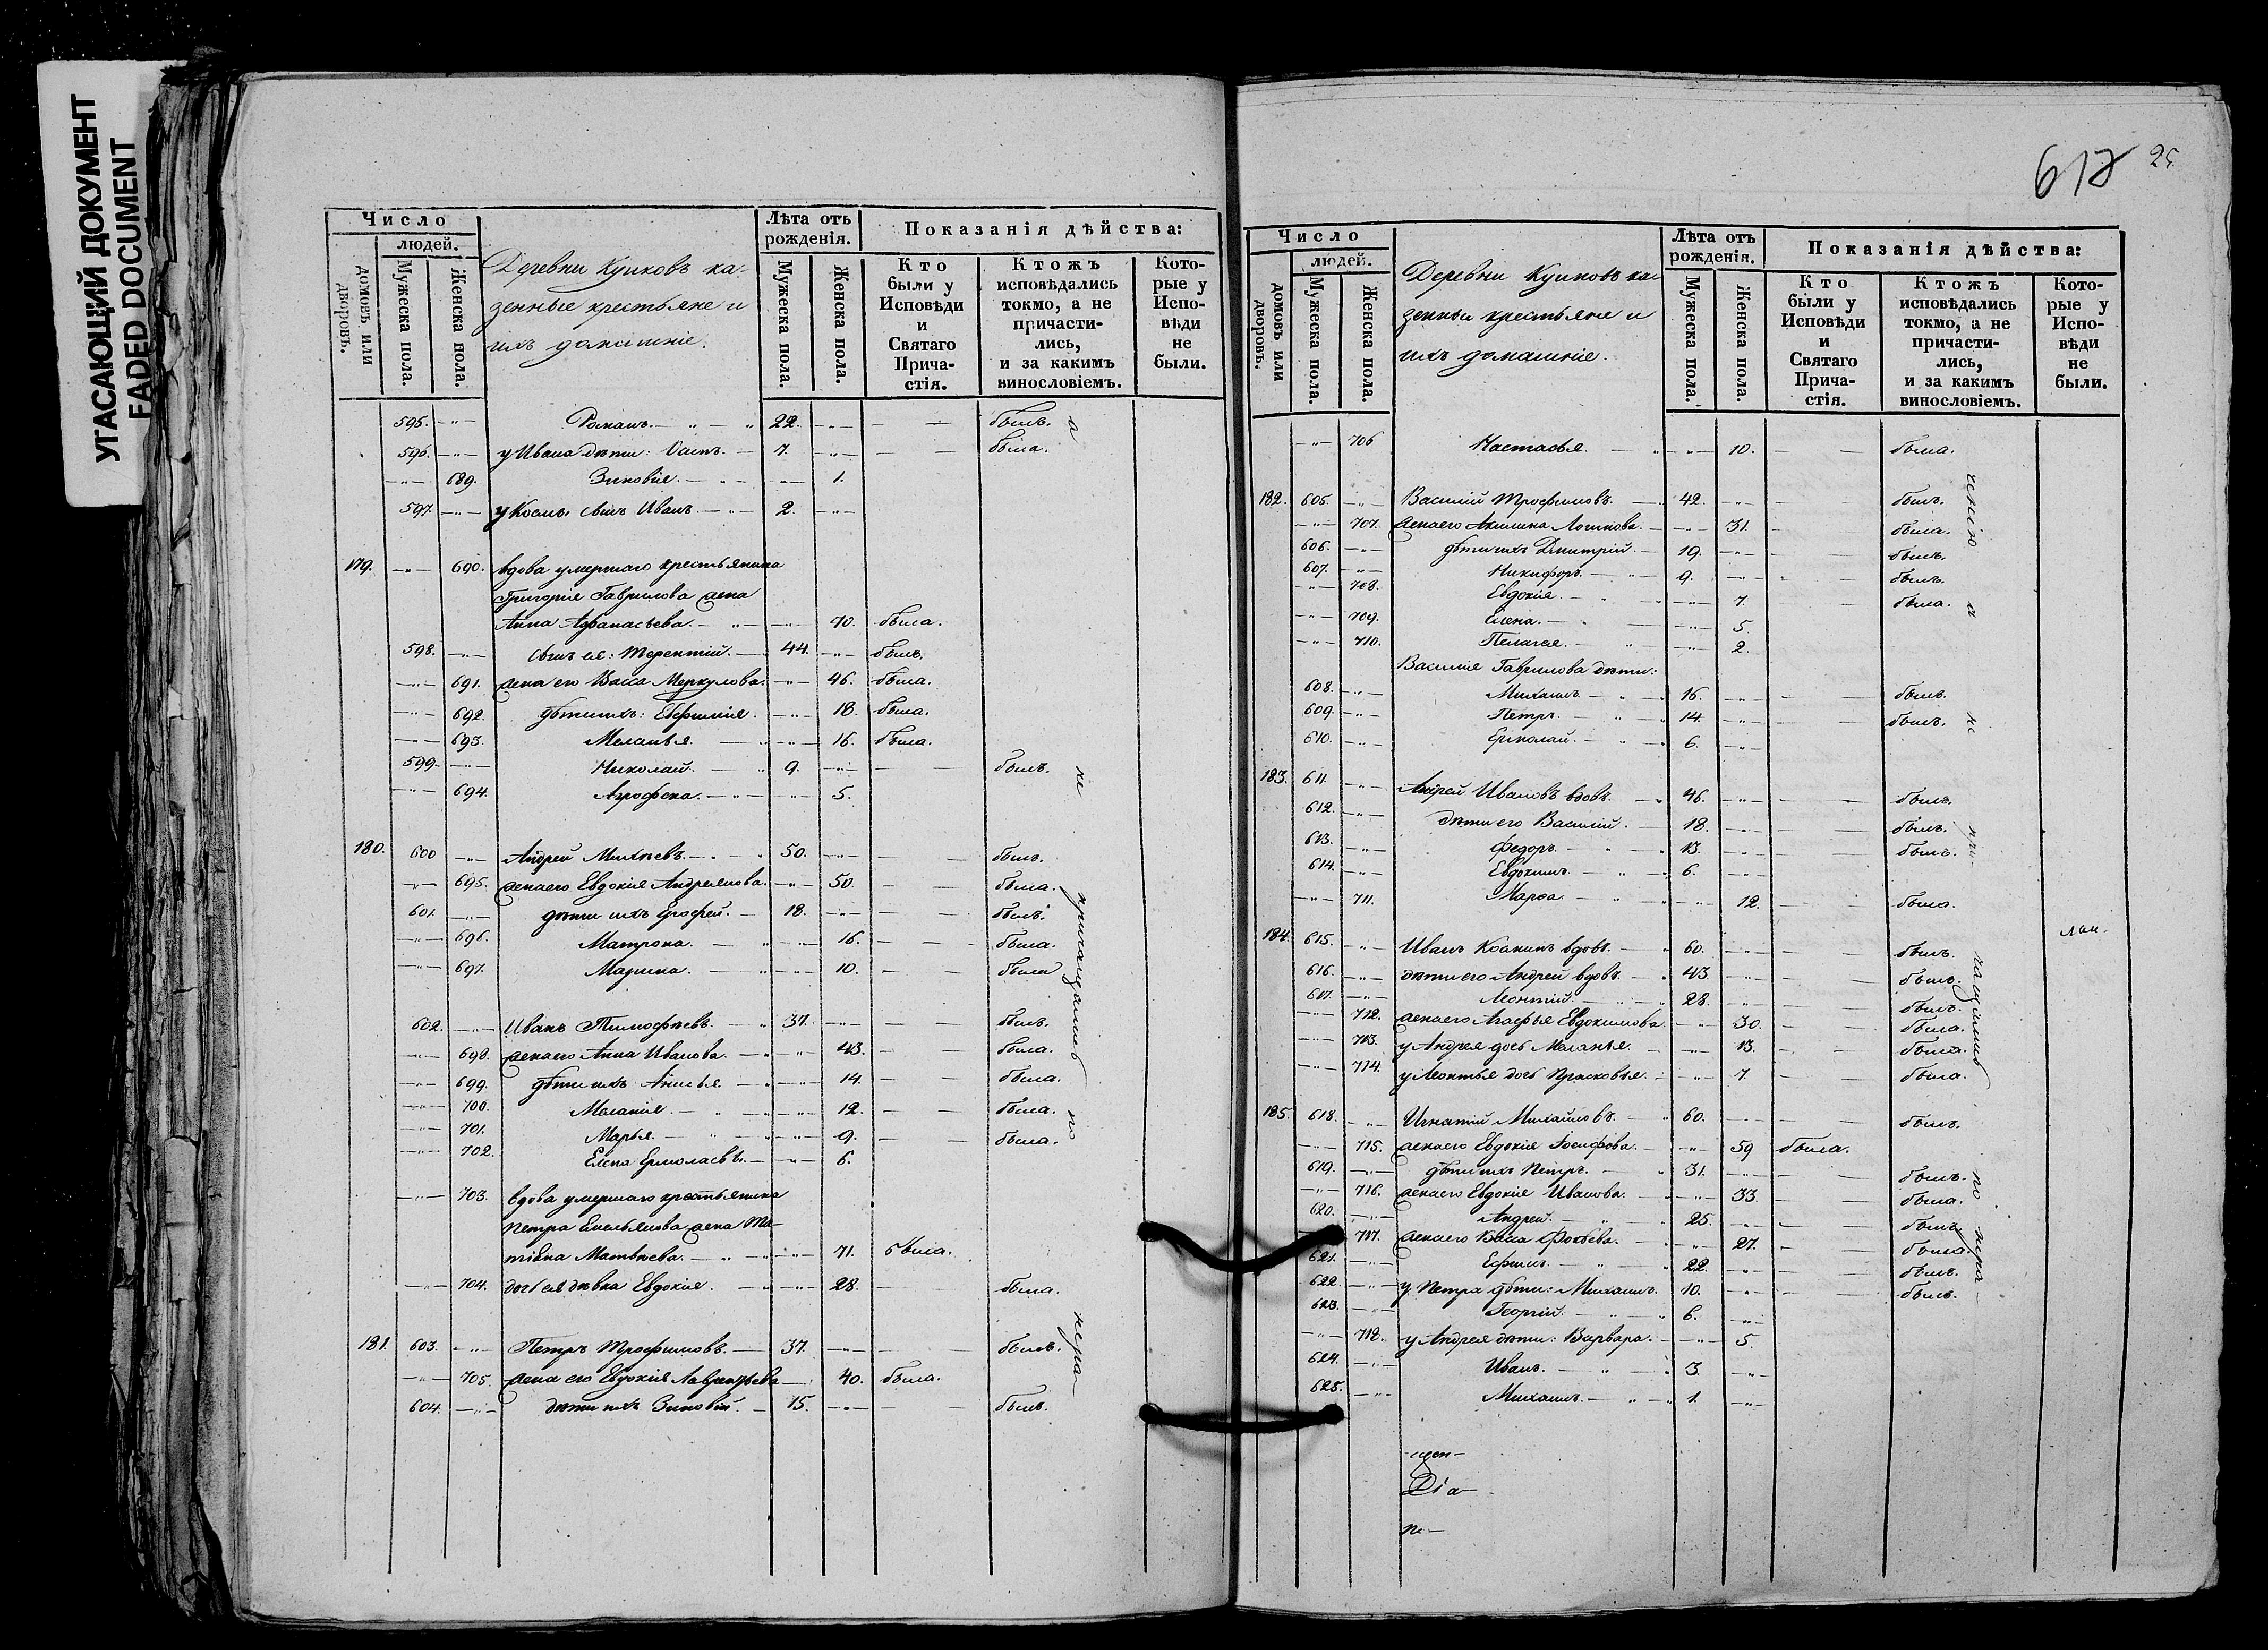 УГАСАЮЩИЙ ДОКУМЕНТ
FADED DOCUMENT
Число
людей.
домовъ или дворовъ.
Мужеска пола.
Женска пола.
Деревни Куиковъ ка-
зенные крестьяне и
ихъ домашніе.
Лѣта отъ рожденія.
Мужеска пола.
Женска пола.
Показанія дѣйства:
Кто были у Исповѣди и Святаго Прича-стія.
Ктожъ исповѣдались токмо, а не причасти-лись, и за какимъ винословіемъ.
Кото-рые у Испо-вѣди не были.
595. Романъ. 22. былъ.
596. у Ивана дѣти: 7. была.
689. Зиновія. 1.
597. у Косьмы сынъ Иванъ. 2.
179. 690. вдова умершаго крестьянина
Григорія Гаврилова жена
Анна Афанасьева. 70. была.
598. сынъ ея: Терентій. 44. былъ.
691. жена его Васса Меркулова. 46. была.
692. дѣти ихъ: Евфимія. 18. была.
693. Меланья. 16. была.
599. Николай. 9. былъ.
694. Агрофена. 5.
180. 600 Андрей Михѣевъ. 50. былъ.
695. жена его Евдокія Андреянова. 50. была.
601. дѣти ихъ Ерофей. 18. былъ.
696. Матрона. 16. была.
697. Марина. 10. была
602. Иванъ Тимофѣевъ. 37. былъ.
698. жена его Анна Иванова. 43. была.
699. дѣти ихъ: Анисья. 14. была.
700. Меланія. 12. была.
701. Марья. 9. была.
702. Елена 6.
703. вдова умершаго крестьянина
Петра Емельянова жена Та-
тіяна Матвѣева. 71. была.
704. дочь ея дѣвка Евдокія. 28. была.
181. 603. Петръ Трофимовъ. 37. былъ.
705. жена его Евдокія Лаврентьева 40. была.
604. дѣти ихъ Зиновій. 15. былъ.
а
не
причащались
по
нера-
617 25
Число
людей.
домовъ или дворовъ.
Мужеска пола.
Женска пола.
Деревни Куиковъ ка-
зенныи крестьяне и
ихъ домашніе.
Лѣта отъ рожденія.
Мужеска пола.
Женска пола.
Показанія дѣйства:
Кто были у Исповѣди и Святаго Прича-стія.
Ктожъ исповѣдались токмо, а не причасти-лись, и за какимъ винословіемъ.
Кото-рые у Испо-вѣди не были.
706 Настасья. 10. была.
182. 605. Василій Трофимовъ. 42. былъ.
707. жена его Акилина Логинова. 31. была.
606. дѣти ихъ Дмитрій. 19. былъ.
607. Никифоръ. 9. былъ.
708. Евдокія. 7. была.
709. Елена. 5.
710. Пелагея. 2.
Василія Гаврилова дѣти:
608. Михаилъ. 16. былъ.
609. Петръ. 14. былъ.
610. Ермолай. 6.
183. 611. Андрей Ивановъ вдовъ. 46. былъ.
612. дѣти его Василій. 18. былъ.
613. Федоръ. 13. былъ.
614. Евдокимъ. 6.
711. Марѳа. 12. была.
184. 615. Иванъ вдовъ. 60. былъ.
616. дѣти его Андрей вдовъ. 43. былъ.
617. Леонтій. 28. былъ.
712. жена его Агафья Евдокимова. 30. была.
713. у Андрея дочь Меланья. 13. была.
714. у Леонтья дочь Прасковья. 7. была.
185. 618. Игнатій Михайловъ. 60. былъ.
715. жена его Евдокія Іосифова. 59 была.
619. дѣти ихъ Петръ. 31. былъ.
716. жена его Евдокія Иванова. 33. была.
620. Андрей. 25. былъ.
717. жена его Васса Фокѣева. 27. была.
621. Ефимъ. 22. былъ.
622. у Петра дѣти: Михаилъ. 10. былъ.
623. Георгій. 6.
718. у Андрея дѣти: Варвара. 5.
624. Иванъ. 3.
625. Михаилъ. 1.
ченію
а
не
при-
чащались
по
нера-
Діа-